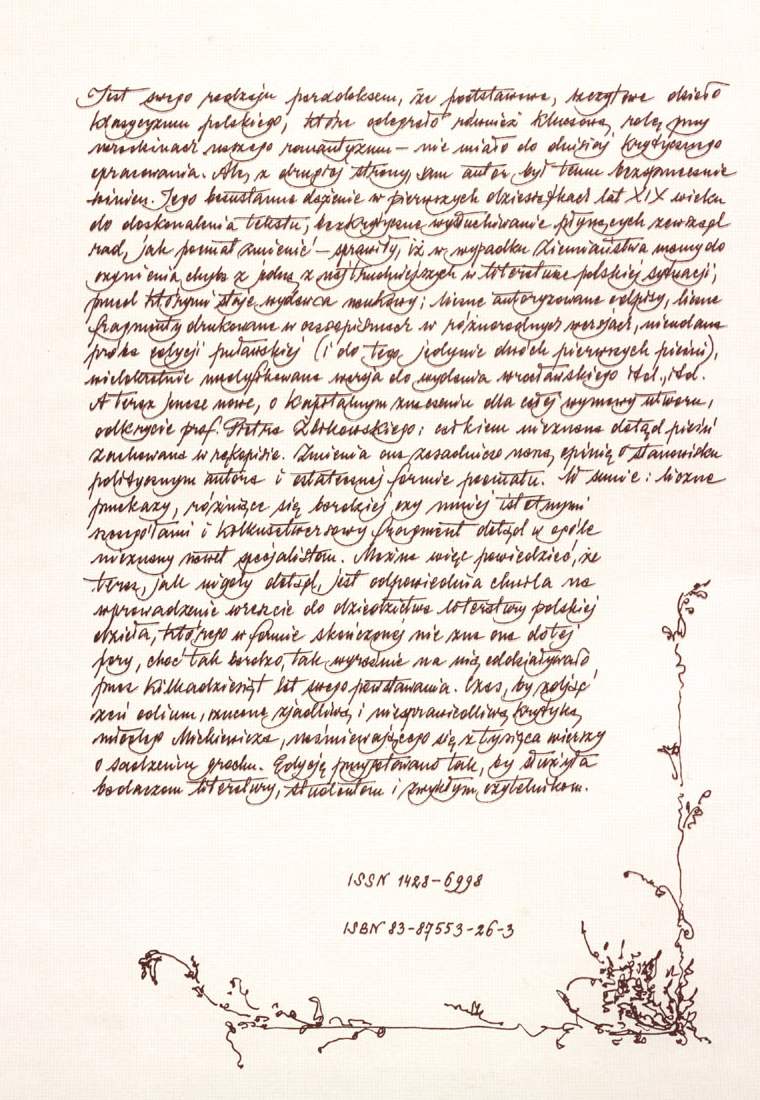 Jest swego rodzaju paradoksem, że podstawowe, szczytowe dzieło
klasycyzmu polskiego, które odegrało również kluczową rolę przy
narodzinach naszego romantyzmu — nie miało do dzisiaj krytycznego
opracowania. Ale, z drugiej strony, sam autor był temu bezsprzecznie
winien. Jego bezustanne dążenie w pierwszych dziesiątkach lat XIX wieku
do doskonalenia tekstu, bezkrytyczne wysłuchiwanie płynących zewsząd
rad, jak poemat zmienić — sprawiły, iż w wypadku Ziemiaństwa mamy do
czynienia chyba z jedną z najtrudniejszych w literaturze polskiej sytuacji,
przed którymi staje wydawca naukowy; liczne autoryzowane odpisy, liczne
fragmenty drukowane w czasopismach w różnorodnych wersjach, nieudana
próba edycji puławskiej (i do tego jedynie dwóch pierwszych pieśni),
wielokrotnie modyfikowana wersja do wydania wrocławskiego itd., itd.
A teraz jeszcze nowe, o kapitalnym znaczeniu dla całej wymowy utworu,
odkrycie prof. Piotra Żbikowskiego: całkiem nieznana dotąd pieśń
zachowana w rękopisie. Zmienia ona zasadniczo naszą opinię o stanowisku
politycznym autora i ostatecznej formie poematu. W sumie: liczne
przekazy, różniące się bardziej czy mniej istotnymi
szczegółami i kilkusetwersowy fragment dotąd w ogóle
nieznany nawet specjalistom. Można więc powiedzieć, że
teraz, jak nigdy dotąd, jest odpowiednia chwila na
wprowadzenie wreszcie do dziedzictwa literatury polskiej
dzieła, którego w formie skończonej nie zna ona do tej
pory, choć tak bardzo, tak wyraźnie na nią oddziaływało
przez kilkadziesiąt lat swego powstawania. Czas, by zdjąć
zeń odium, rzucone zjadliwą i niesprawiedliwą krytyką
młodego Mickiewicza, naśmiewającego się z tysiąca wierszy
o sadzeniu grochu. Edycję przygotowano tak, by służyła
badaczom literatury, studentom i zwykłym czytelnikom.
ISSN 1428-6998
ISBN 83-87553-26-3